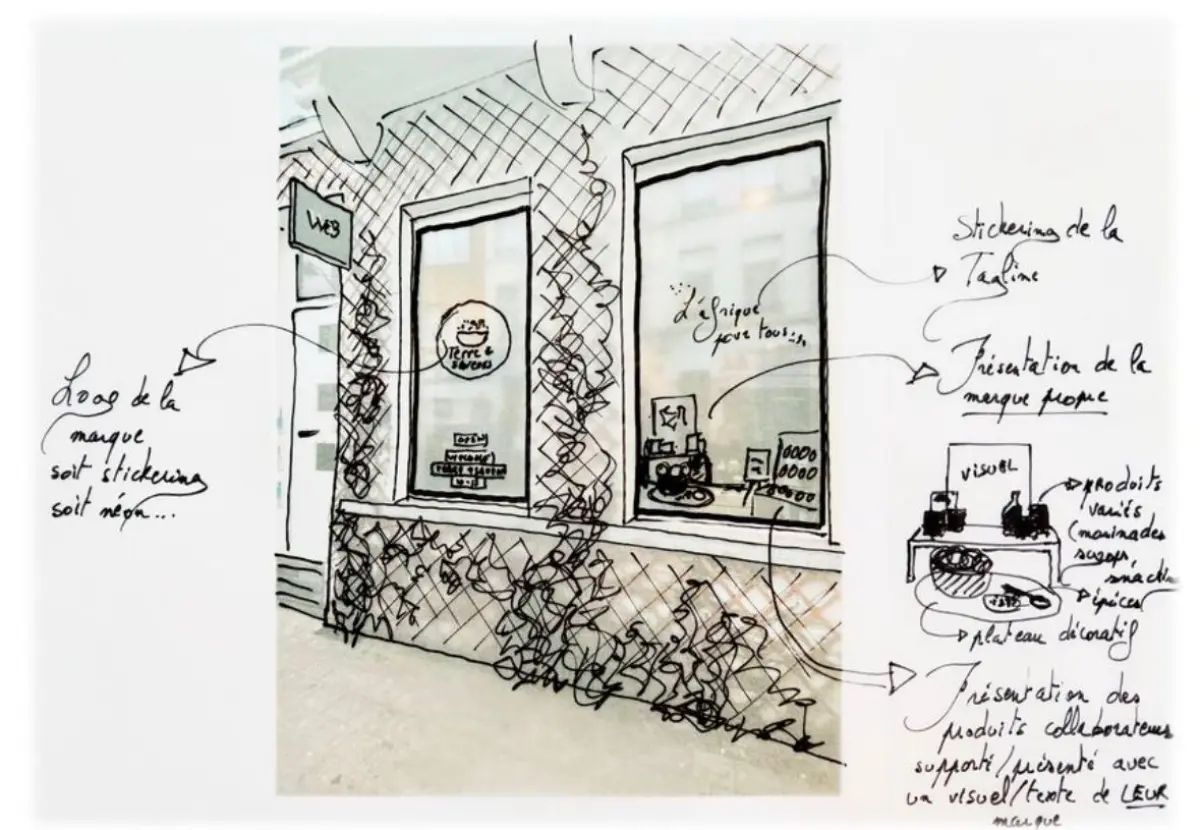 WEB
Terre &
saveurs
OPEN
10-18
L'afrique
pour tous...
Logo de la
marque
soit stickering
soit néon...
Stickering de la
Tagline
Présentation de la
marque propre
VISUEL
produits
variés
(marinades
épices
plateau décoratif
Présentation des
produits collaborateurs
supporté/présenté avec
un visuel/texte de LEUR
marque